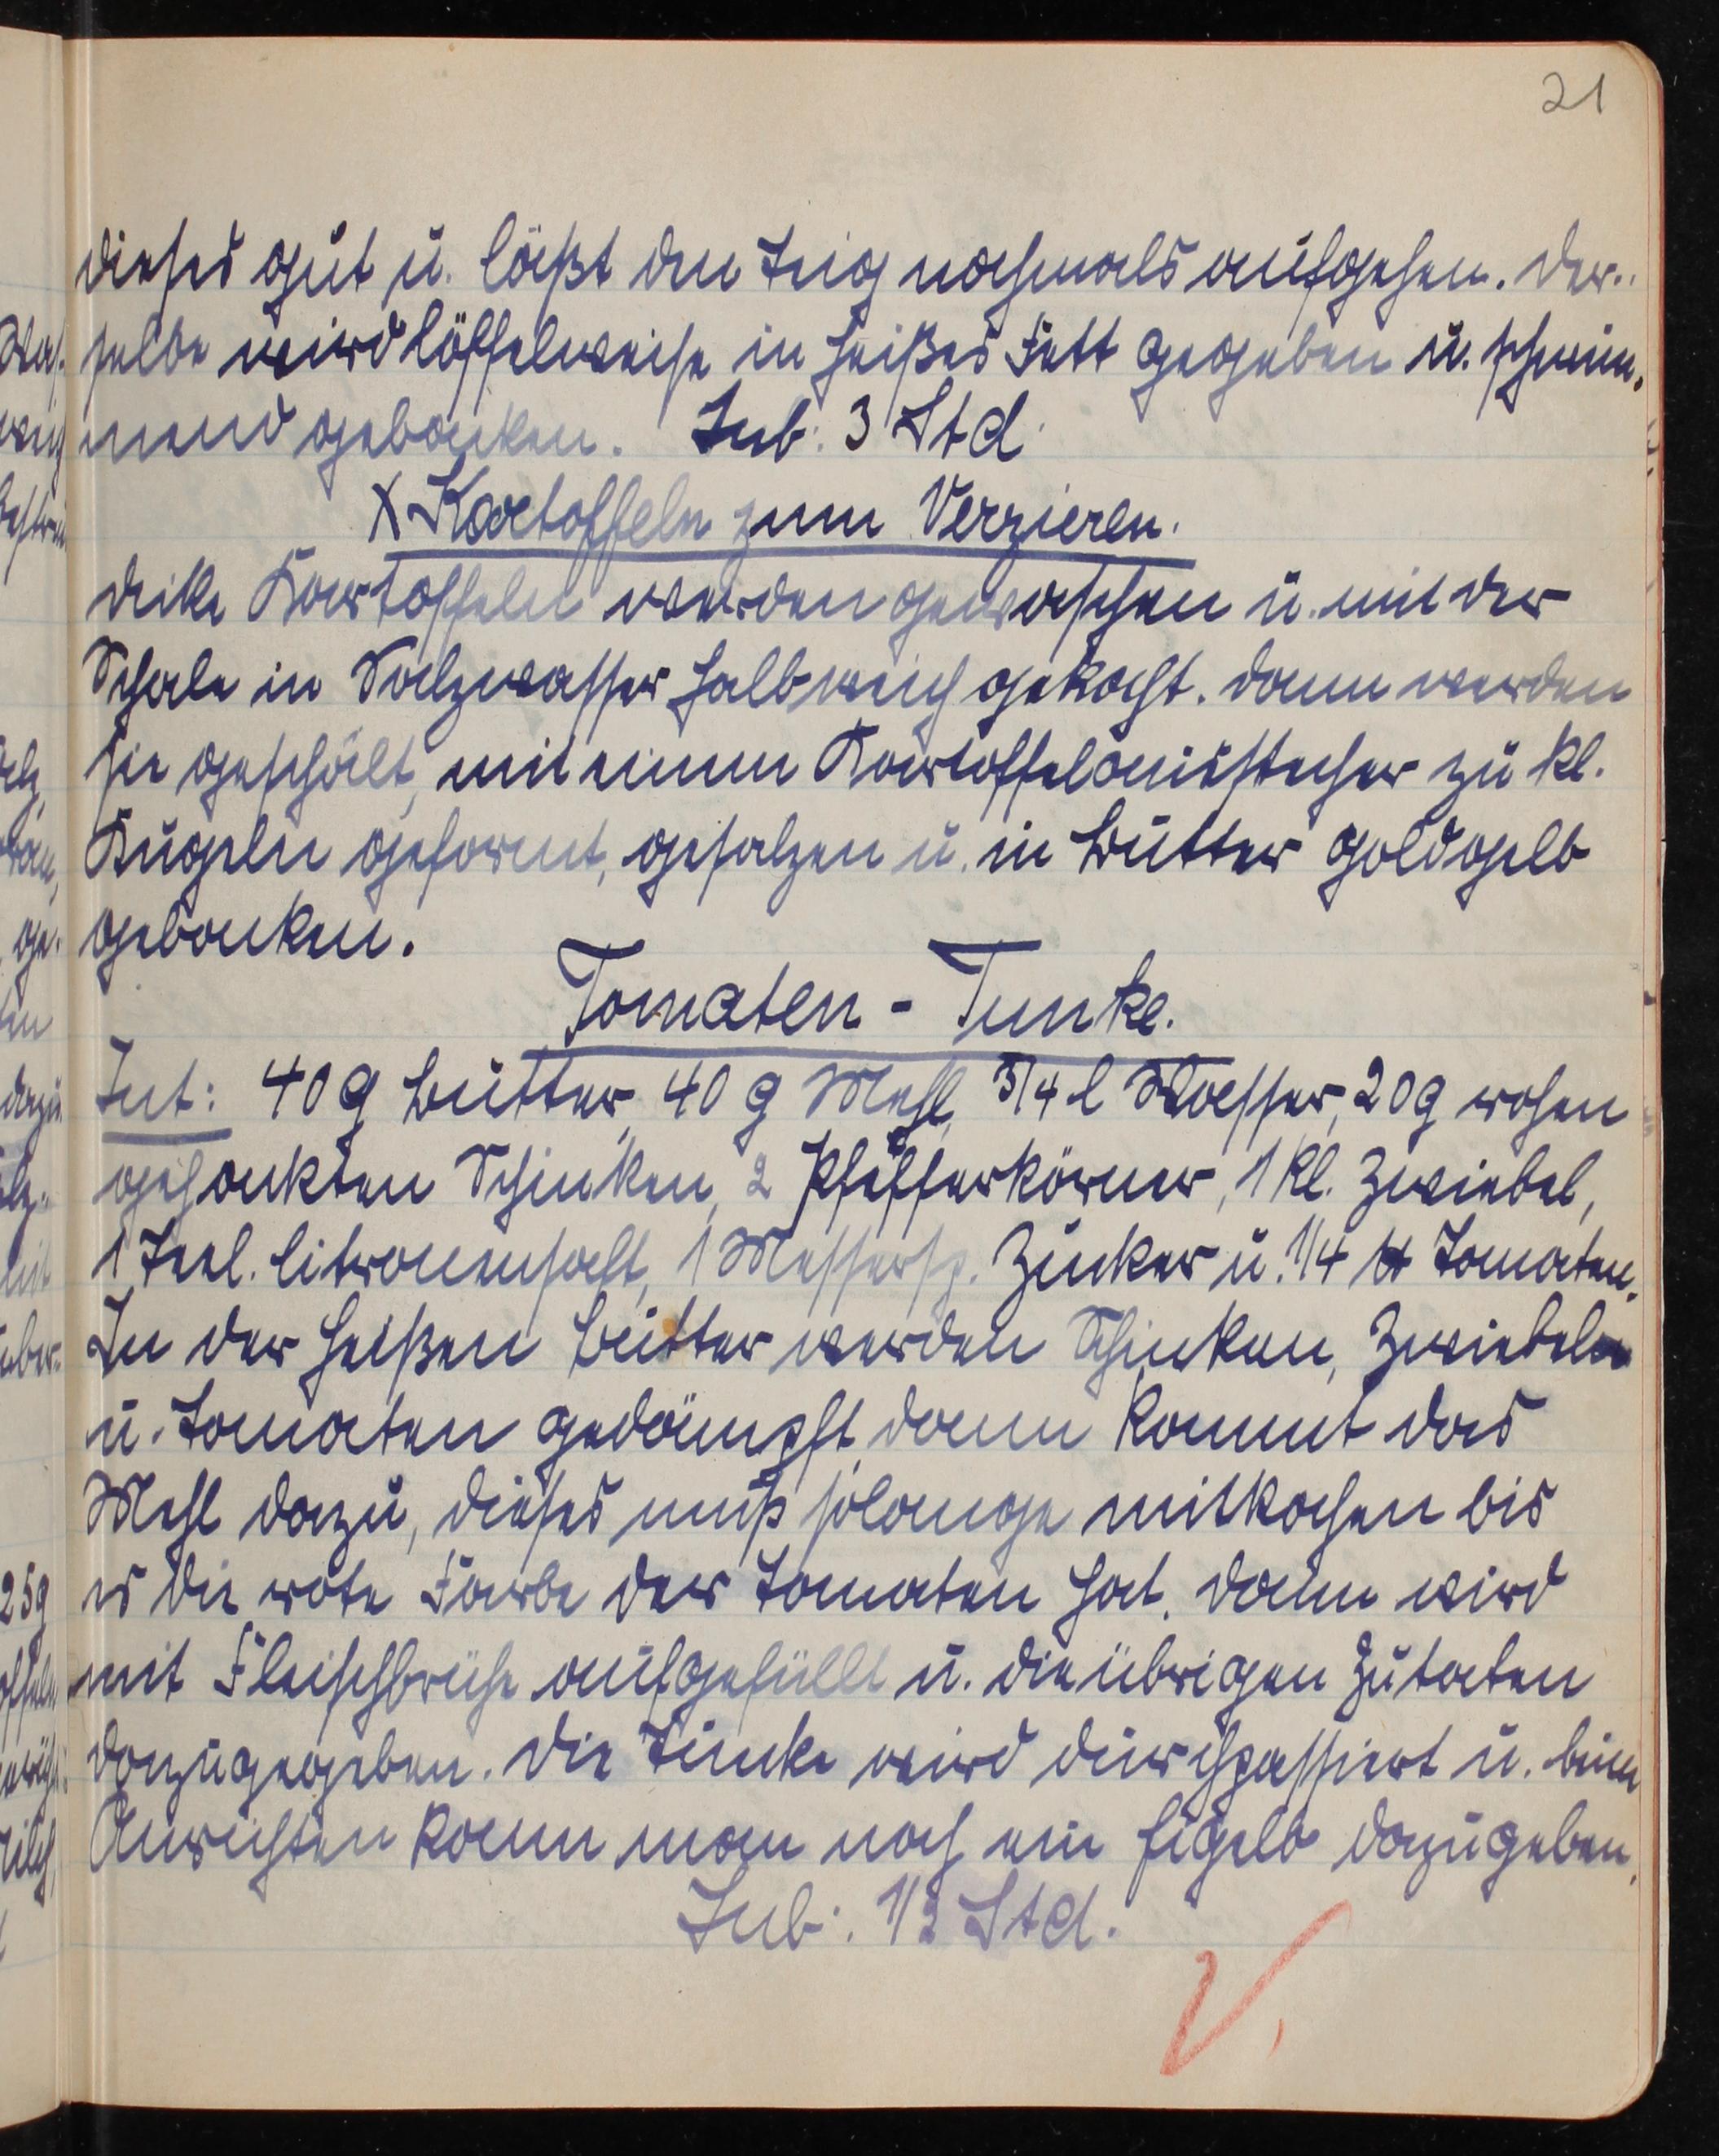 21
dieses gut u. läßt den Teig nochmals aufgehen. Der-
selbe wird löffelweise in heißes Fett gegeben u. schwim-
mend gebacken. Zub: 3 Std.
X Kartoffeln zum Verzieren.
Dicke Kartoffeln werden gewaschen u. mit der
Schale in Salzwasser halbweich gekocht. Dann werden
sie geschält, mit einem Kartoffelausstecher zu kl.
Kugeln geformt, gesalzen u. in Butter goldgelb
gebacken.
Tomaten - Tunke.
Zut: 40 g Butter, 40 g Mehl, 3/4 l Wasser, 20g rohen
gehackten Schinken, 2 Pfefferkörner, 1 kl. Zwiebel,
1 Teel. Citronensaft, 1 Messersp. Zucker u. 1/4 ℔ Tomaten.
In der heißen Butter werden Schinken, Zwiebeln
u. Tomaten gedämpft, dann kommt das
Mehl dazu, dieses muß solange mitkochen bis
es die rote Farbe der Tomaten hat. Dann wird
mit Fleischbrühe aufgefüllt u. die übrigen Zutaten
dazugegeben. Die Tunke wird durchpassiert u. beim
Anrichten kann man noch ein Eigelb dazugeben.
Zub: 1/2 Std.
V.